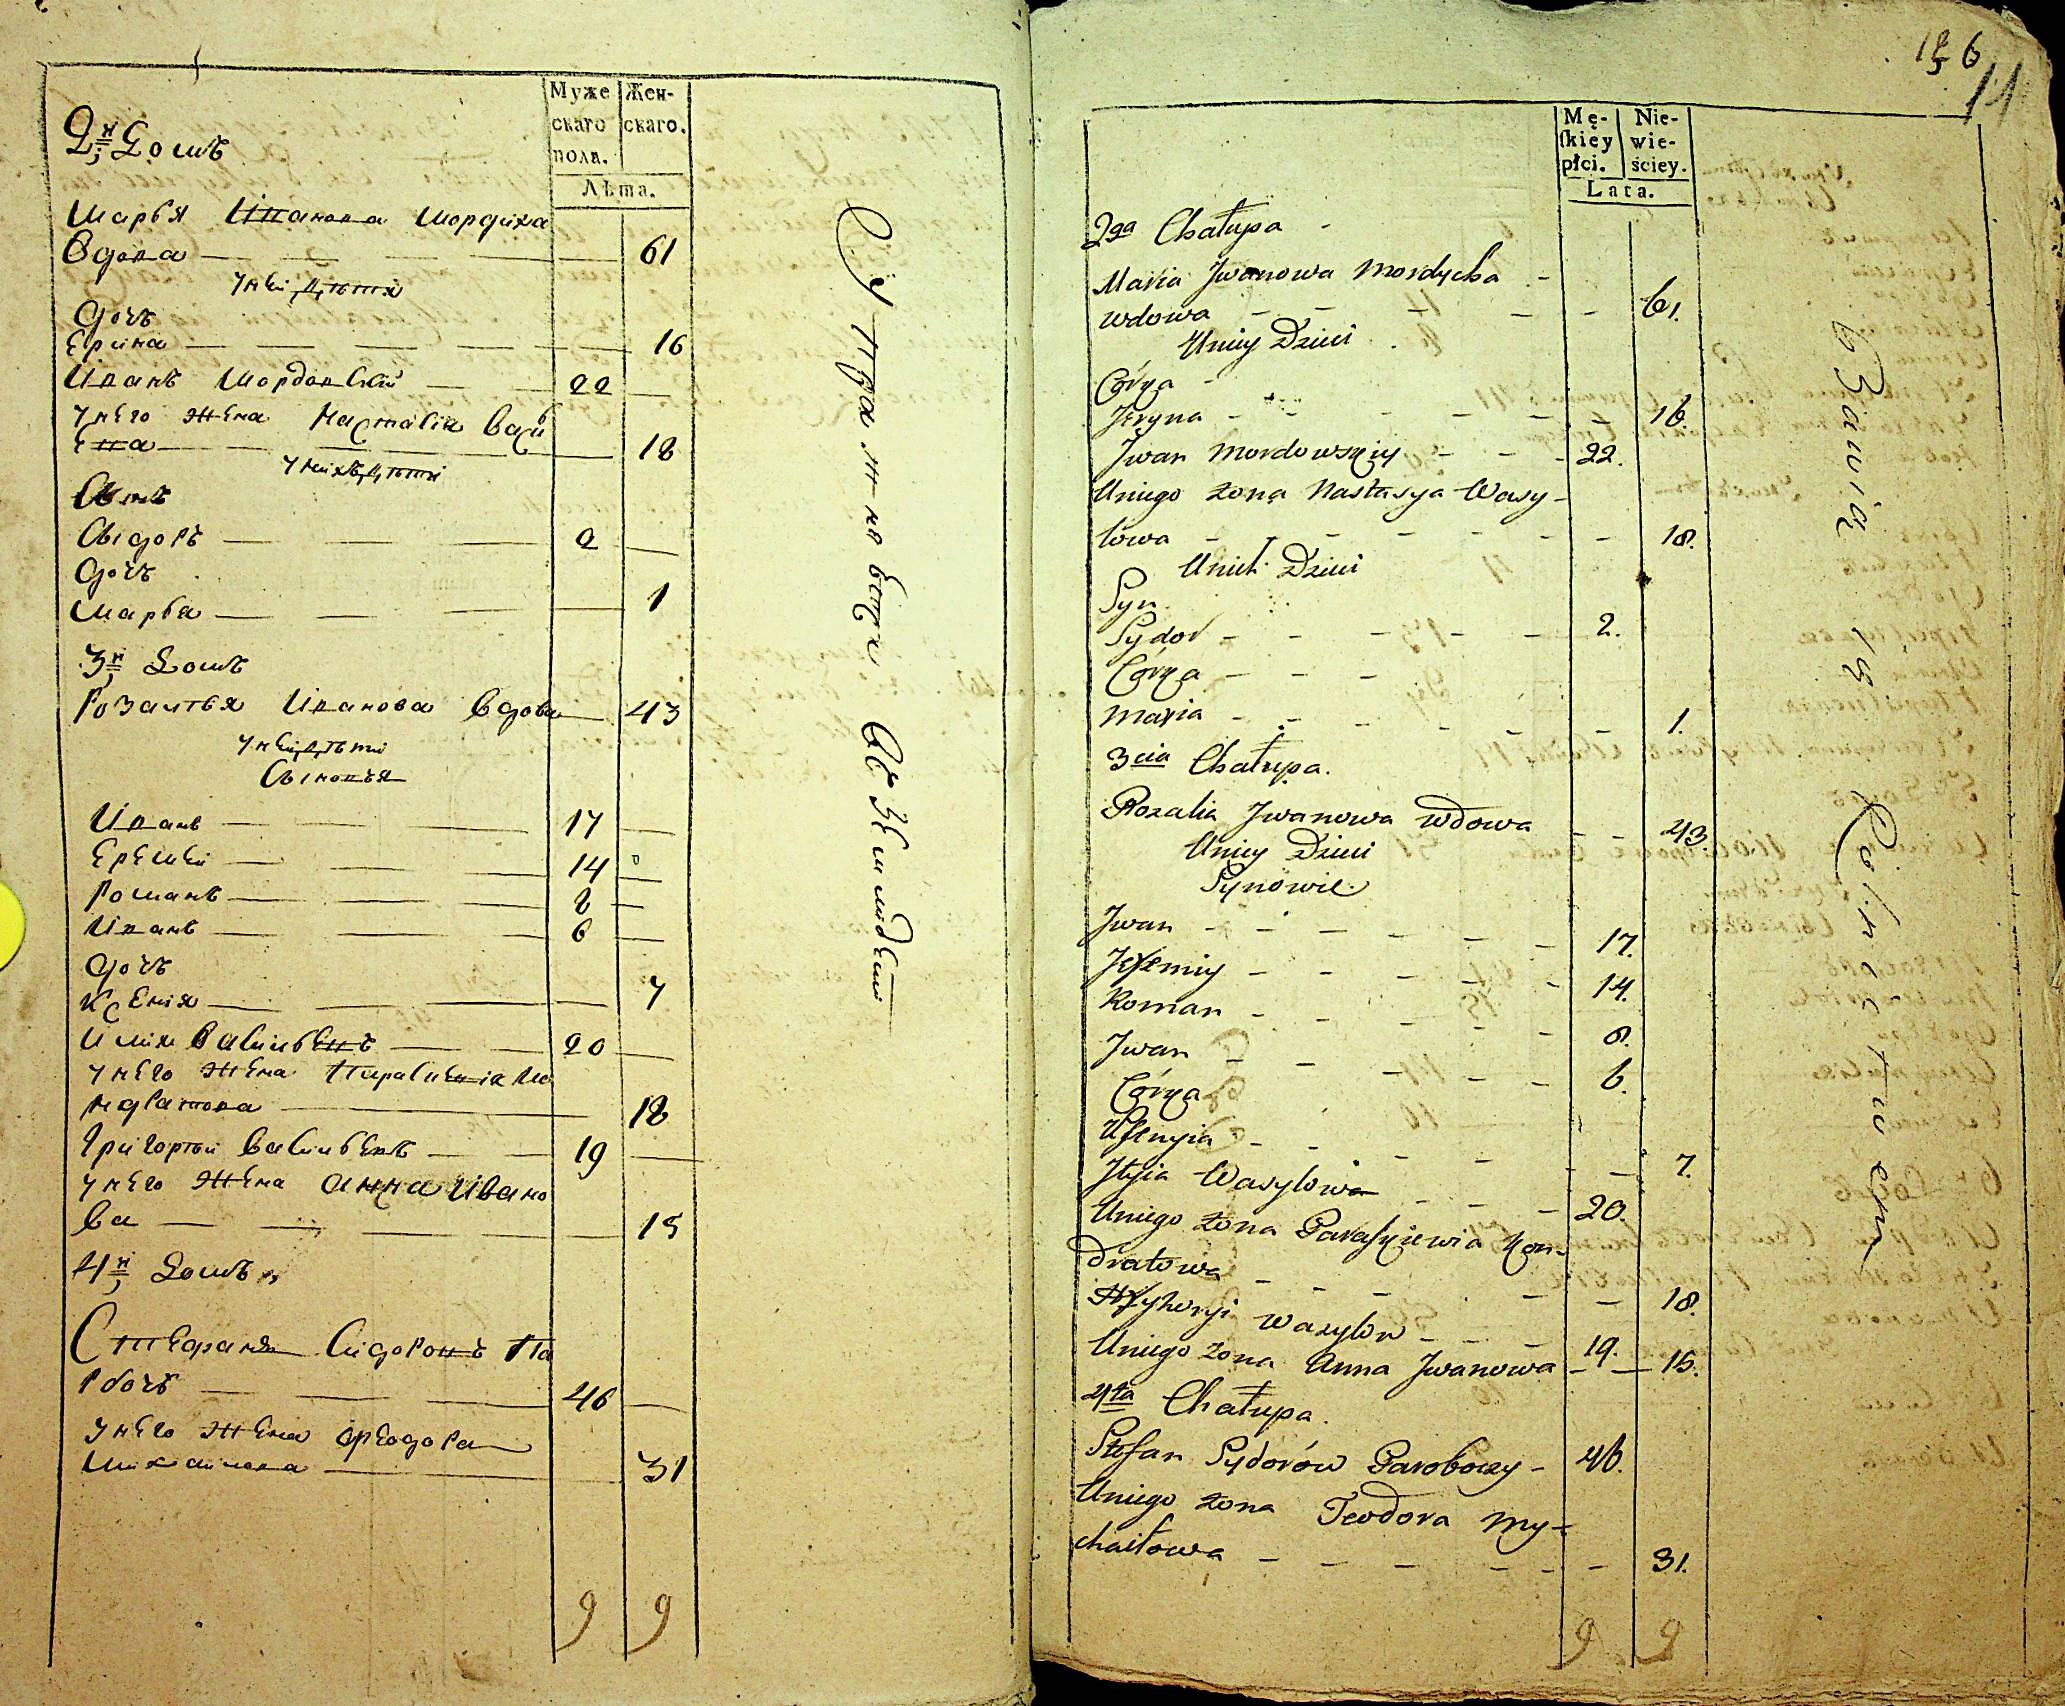 Муже
скаго
пола.
Жен-
скаго.
Лѣта.
2й Домъ
Марья Иванова Мордиха
Вдова — 61
у неи дѣти
дочь
Ерина — 16
Иванъ Мордовскiй — 22
у него жена Настасiя Васи
лева — 18
у нихъ дѣти
Сынъ
Сыдоръ — 2
дочь
Марья — 1
3й Домъ
Розалѣя Иванова Вдова — 43
у неи дѣти
Сыновья
Иванъ — 17
Еремей — 14
Романъ — 8
Иванъ — 6
дочь
Ксенiя — 7
Илiя Василь — 20
у него жена Параскевiя Ко
ндратова — 18
Григорiй Василь — 19
у него жена Анна Ивано
ва — 15
4й Домъ
Стефанъ Сидоровъ Па
робочь — 46
у него жена Феодора
Михайлова — 31
9 9
156
14
Mę-
skiey
płci.
Nie-
wie-
ściey.
Lata.
2ga Chałupa -
Maria Jwanowa Mordycha -
wdowa - - - 61.
Uniey Dzieci
Córka -
Jeryna - - - 16.
Jwan Mordowskiy - - - 22.
Uniego żona Nastasya Wasy-
lowa - - - 18.
Unich Dzieci
Syn.
Sydor - - - 2.
Córka - - -
Maria - - - 1.
3cia Chałupa.
Rozalia Jwanowa wdowa - - 43.
Uniey Dzieci
Synowie.
Jwan - - - 17.
Jeremiy - - - 14.
Roman - - - 8.
Jwan - - - 6.
Córka
- - - 7.
Jlyia Wasylow - - - 20.
Uniego żona Paraskiewia Kon-
dratowa - - - 18.
Hryhoryi Wasylow - - - 19.
Uniego żona Anna Jwanowa - - 15.
4ta Chałupa.
Stefan Sydorów Paroboczy - 46.
Uniego żona Teodora My-
chaiłowa - - - 31.
9 9